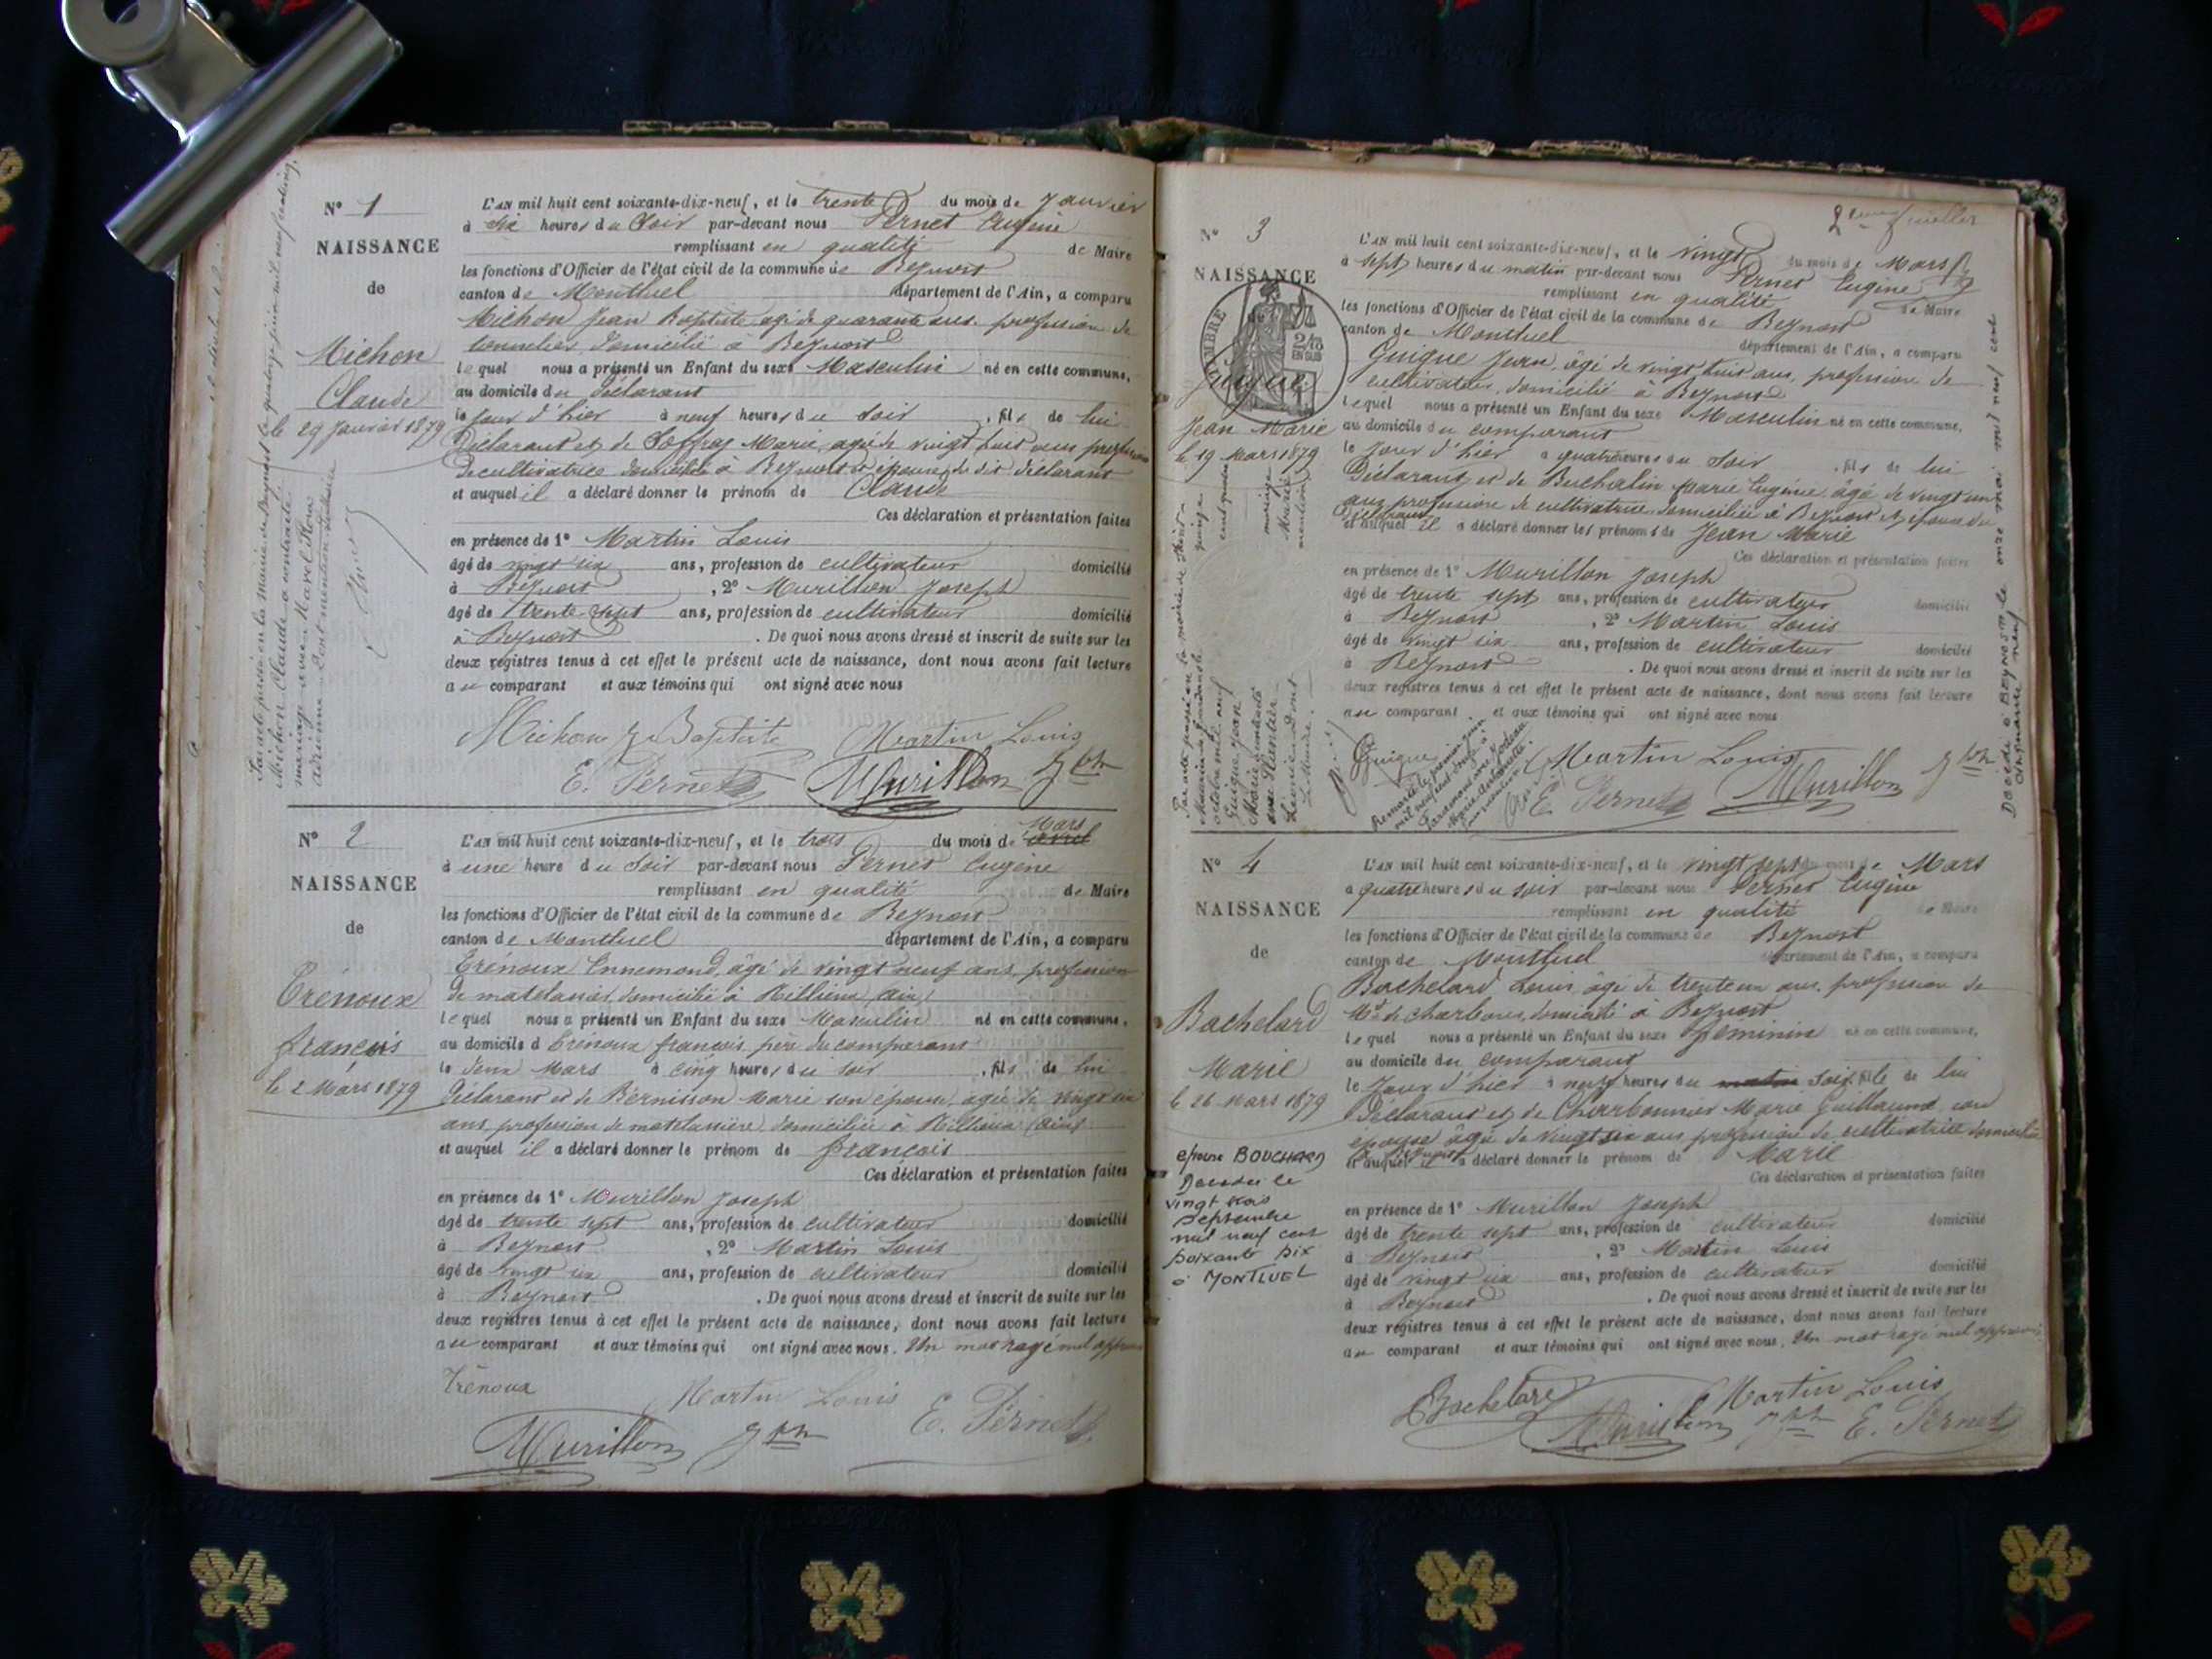 N° 1
NAISSANCE
de
Michon
Claude
le 29 Janvier 1879
L'AN mil huit cent soixante-dix-neuf, et le trente du mois de Janvier
à six heures du Soir par-devant nous Pernet Eugène
remplissant en qualité de Maire
les fonctions d'Officier de l'état civil de la commune de Beynost
canton de Montluel département de l'Ain, a comparu
Michon Jean Baptiste agé de quarante ans profession de
tonnelier domicilié à Beynost
lequel nous a présenté un Enfant du sexe Masculin né en cette commune,
au domicile du déclarant
le jour d'hier à neuf heures du soir, fils de lui
Déclarant et de Marie agée de vingt huit ans profession
de cultivatrice domiciliée à Beynost et épouse du dit déclarant
et auquel il a déclaré donner le prénom de Claude
Ces déclaration et présentation faites
en présence de 1° Martin Louis
âgé de vingt six ans, profession de cultivateur domicilié
à Beynost, 2° Murillon Joseph
âgé de trente-sept ans, profession de cultivateur domicilié
à Beynost. De quoi nous avons dressé et inscrit de suite sur les
deux registres tenus à cet effet le présent acte de naissance, dont nous avons fait lecture
au comparant et aux témoins qui ont signé avec nous
Michon Baptiste Martin Louis
E. Pernet Murillon Jph
N° 2
NAISSANCE
de
Trénoux
François
le 2 Mars 1879
L'AN mil huit cent soixante-dix-neuf, et le trois du mois de Mars
à une heure du Soir par-devant nous Pernet Eugène
remplissant en qualité de Maire
les fonctions d'Officier de l'état civil de la commune de Beynost
canton de Montluel département de l'Ain, a comparu
Trénoux Ennemond, âgé de vingt neuf ans, profession
de matelassier, domicilié à Rillieux (Ain)
lequel nous a présenté un Enfant du sexe Masculin né en cette commune,
au domicile d Trénoux François, père du comparant
le deux Mars à cinq heures du soir, fils de lui
Déclarant et de Bernisson Marie son épouse, agée de vingt six
ans, profession de matelassière, domiciliée à Rillieux (Ain)
et auquel il a déclaré donner le prénom de François
Ces déclaration et présentation faites
en présence de 1° Murillon Joseph
âgé de trente sept ans, profession de cultivateur domicilié
à Beynost, 2° Martin Louis
âgé de vingt six ans, profession de cultivateur domicilié
à Beynost. De quoi nous avons dressé et inscrit de suite sur les
deux registres tenus à cet effet le présent acte de naissance, dont nous avons fait lecture
au comparant et aux témoins qui ont signé avec nous. Un mot rayé nul
Trénoux Martin Louis E. Pernet
Murillon Jph
N° 3
NAISSANCE
TIMBRE
EN SUS
Guigue
Jean Marie
le 19 Mars 1879
L'AN mil huit cent soixante-dix-neuf, et le vingt du mois de Mars
à sept heures du matin par-devant nous Pernet Eugène
remplissant en qualité de Maire
les fonctions d'Officier de l'état civil de la commune de Beynost
canton de Montluel département de l'Ain, a comparu
Guigue Jean, âgé de vingt huit ans, profession de
cultivateur, domicilié à Beynost
lequel nous a présenté un Enfant du sexe Masculin né en cette commune,
au domicile du comparant
le jour d'hier à quatre heures du Soir, fils de lui
Déclarant et de Marie Eugénie âgée de vingt un
ans profession de cultivatrice domiciliée à Beynost et épouse du
Déclarant
et auquel il a déclaré donner les prénoms de Jean Marie
Ces déclaration et présentation faites
en présence de 1° Murillon Joseph
âgé de trente sept ans, profession de cultivateur domicilié
à Beynost, 2° Martin Louis
âgé de vingt six ans, profession de cultivateur domicilié
à Beynost. De quoi nous avons dressé et inscrit de suite sur les
deux registres tenus à cet effet le présent acte de naissance, dont nous avons fait lecture
au comparant et aux témoins qui ont signé avec nous
Guigue Martin Louis
E. Pernet Murillon Jph
Décédé à BEYNOST le onze mai mil neuf cent
cinquante neuf
N° 4
NAISSANCE
de
Bachelard
Marie
le 26 Mars 1879
épouse BOUCHARD
Décédée le
vingt
Septembre
mil neuf cent
soixante dix
à MONTLUEL
L'AN mil huit cent soixante-dix-neuf, et le vingt sept du mois de Mars
à quatre heures du soir par-devant nous Pernet Eugène
remplissant en qualité de Maire
les fonctions d'Officier de l'état civil de la commune de Beynost
canton de Montluel département de l'Ain, a comparu
Bachelard Louis, âgé de trente un ans, profession de
Md de charbons, domicilié à Beynost
lequel nous a présenté un Enfant du sexe féminin né en cette commune,
au domicile du comparant
le Jour d'hier à neuf heures du matin soir, fille de lui
Déclarant et de Charbonnier Marie Guillaume son
épouse âgée de vingt six ans profession de cultivatrice domiciliée
à Beynost
et auquel il a déclaré donner le prénom de Marie
Ces déclaration et présentation faites
en présence de 1° Murillon Joseph
âgé de trente sept ans, profession de cultivateur domicilié
à Beynost, 2° Martin Louis
âgé de vingt six ans, profession de cultivateur domicilié
à Beynost. De quoi nous avons dressé et inscrit de suite sur les
deux registres tenus à cet effet le présent acte de naissance, dont nous avons fait lecture
au comparant et aux témoins qui ont signé avec nous. Un mot rayé nul
Bachelard Martin Louis
Murillon Jph E. Pernet